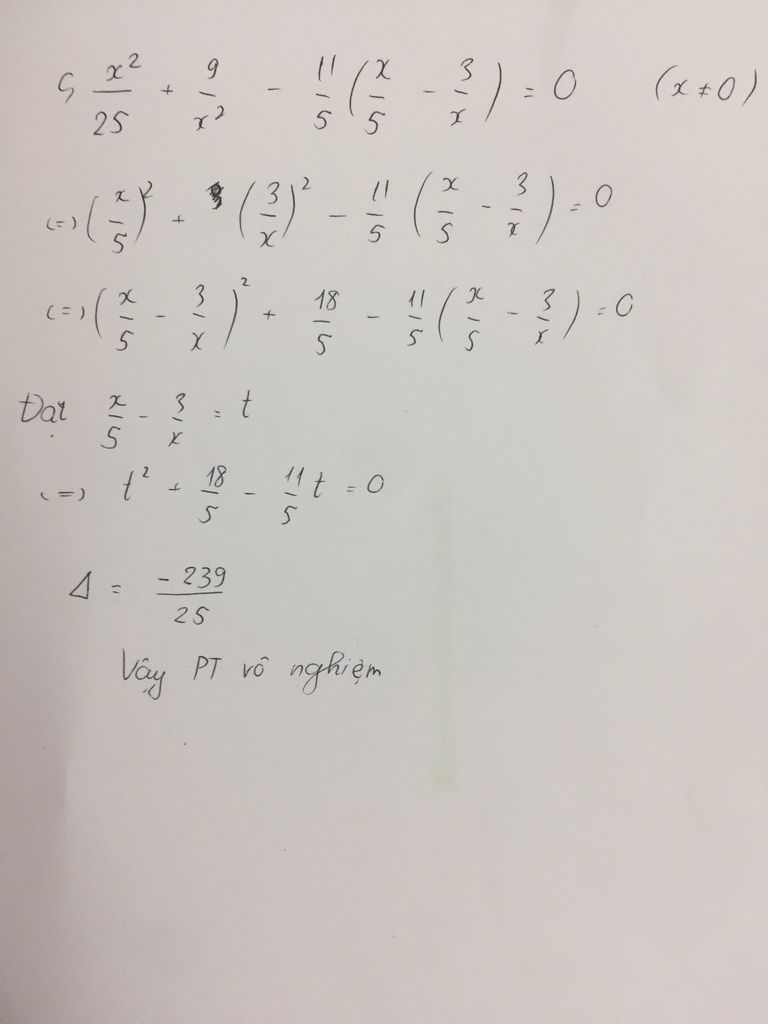 5 x²/25 + 9/x² - 11/5 (x/5 - 3/x) = 0 (x ≠ 0)
(=) (x/5)² + (3/x)² - 11/5 (x/5 - 3/x) = 0
(=) (x/5 - 3/x)² + 18/5 - 11/5 (x/5 - 3/x) = 0
Đặt x/5 - 3/x = t
(=) t² + 18/5 - 11/5 t = 0
Δ = -239/25
Vậy PT vô nghiệm